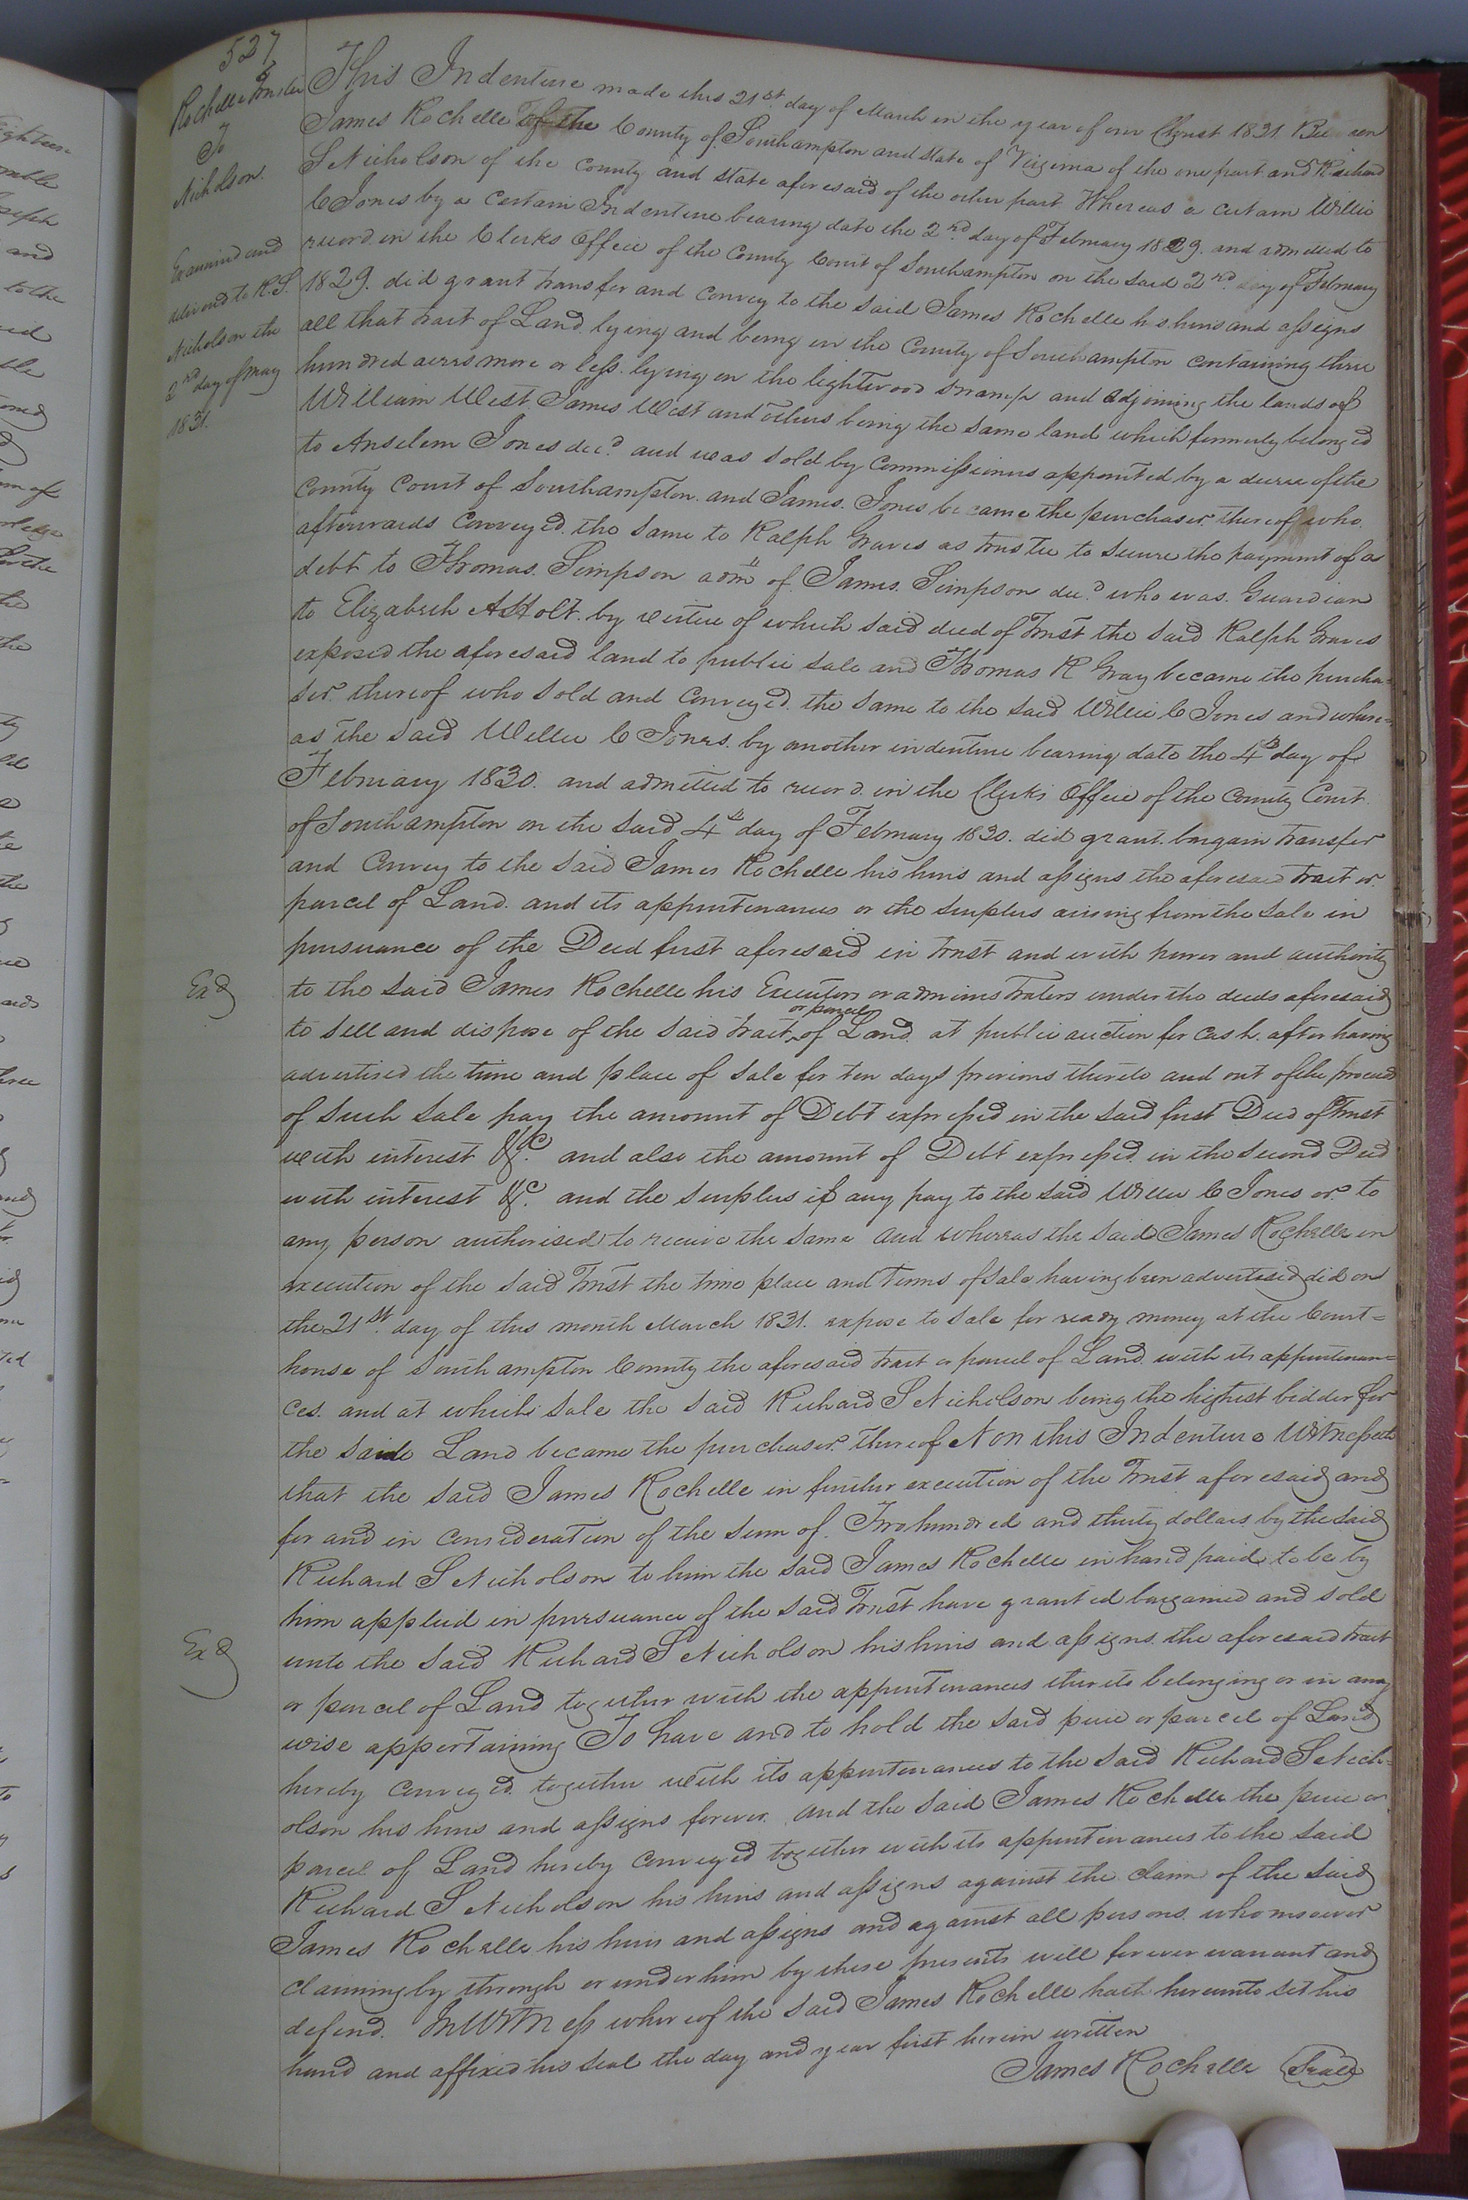 527
Rochelle Trustee
To
Nicholson.
Examined and
delivered to R. S.
Nicholson the
2nd day of May
1831.
Exd
Exd
This Indenture made this 21st. day of March in the year of our Christ 1831. Between
James Rochelle of the County of Southampton and State of Virginia of the one part and Richard
S Nicholson of the County and State aforesaid of the other part Whereas a certain Willie
C Jones by a Certain Indenture bearing date the 2nd. day of February 1829. and admitted to
record in the Clerks Office of the County Court of Southampton on the said 2nd. day of February
1829. did grant transfer and convey to the said James Rochelle his heirs and assigns
all that tract of Land lying and being in the County of Southampton containing three
hundred acres more or less. lying on the lightwood swamp and adjoining the lands of
William West James West and others being the same land which formerly belonged
to Anselem Jones decd. and was sold by Commissioners appointed by a decree of the
County Court of Southampton. and James. Jones became the purchaser. thereof who.
afterwards conveyed. the same to Ralph Graves as trustee to secure the payment of a
debt to Thomas. Simpson admr. of James. Simpson decd. who was. Guardian
to Elizabeth A Holt. by virtue of which said deed of Trust the said Ralph Graves
exposed the aforesaid land to public sale and Thomas R Gray became the purcha-
ser. thereof who sold and conveyed. the same to the said Willie C Jones and where-
as the said Willie C Jones. by another indenture bearing date the 4th day of
February 1830. and admitted to record. in the Clerks Office of the County Court.
of Southampton on the said 4th day of February 1830. did grant. bargain transfer
and Convey to the said James Rochelle his heirs and assigns the aforesaid tract or.
parcel of Land. and its appurtenances or the surplus arising from the sale in
pursuance of the Deed first aforesaid in trust and with power and authority
to the said James Rochelle his Executors or administrators under the deeds aforesaid
to sell and dispose of the said tract or parcel of Land. at public auction for cash. after having
advertised the time and place of sale for ten days previous thereto and out of the proceeds
of such sale pay the amount of Debt expressed in the said first Deed of Trust
with interest &c. and also the amount of Debt expressed. in the second Deed
with interest &c. and the surplus if any pay to the said Willie C Jones or. to
any person authorised to receive the same and whereas the said James Rochelle in
execution of the said Trust the time place and Terms of sale having been advertised did on
the 21st. day of this month March 1831. expose to sale for ready money at the Court=
house of Southampton County the aforesaid tract or parcel of Land. with its appurtenan=
ces. and at which sale the said Richard S Nicholson being the highest bidder for
the said Land became the purchaser. thereof Now this Indenture Witnesseth
that the said James Rochelle in further execution of the Trust aforesaid and
for and in consideration of the sum of. Two hundred and thirty dollars by the said
Richard S Nicholson to him the said James Rochelle in hand paid to be by
him applied in pursuance of the said Trust have granted bargained and sold
unto the said Richard S Nicholson his heirs and assigns the aforesaid tract
or parcel of Land together with the appurtenances thereto belonging or in any
wise appertaining To have and to hold the said piece or parcel of Land
hereby conveyed. together with its appurtenances to the said Richard S Nich-
olson his heirs and assigns forever. And the said James Rochelle the piece or
parcel of Land hereby conveyed together with its appurtenances to the said
Richard S Nicholson his heirs and assigns against the claim of the said
James Rochelle his heirs and assigns and against all persons. whomsoever
claiming by through or under him by these presents will forever warrant and
defend. In Witness whereof the said James Rochelle hath hereunto set his
hand and affixed his seal the day and year first herein written
James Rochelle Seal